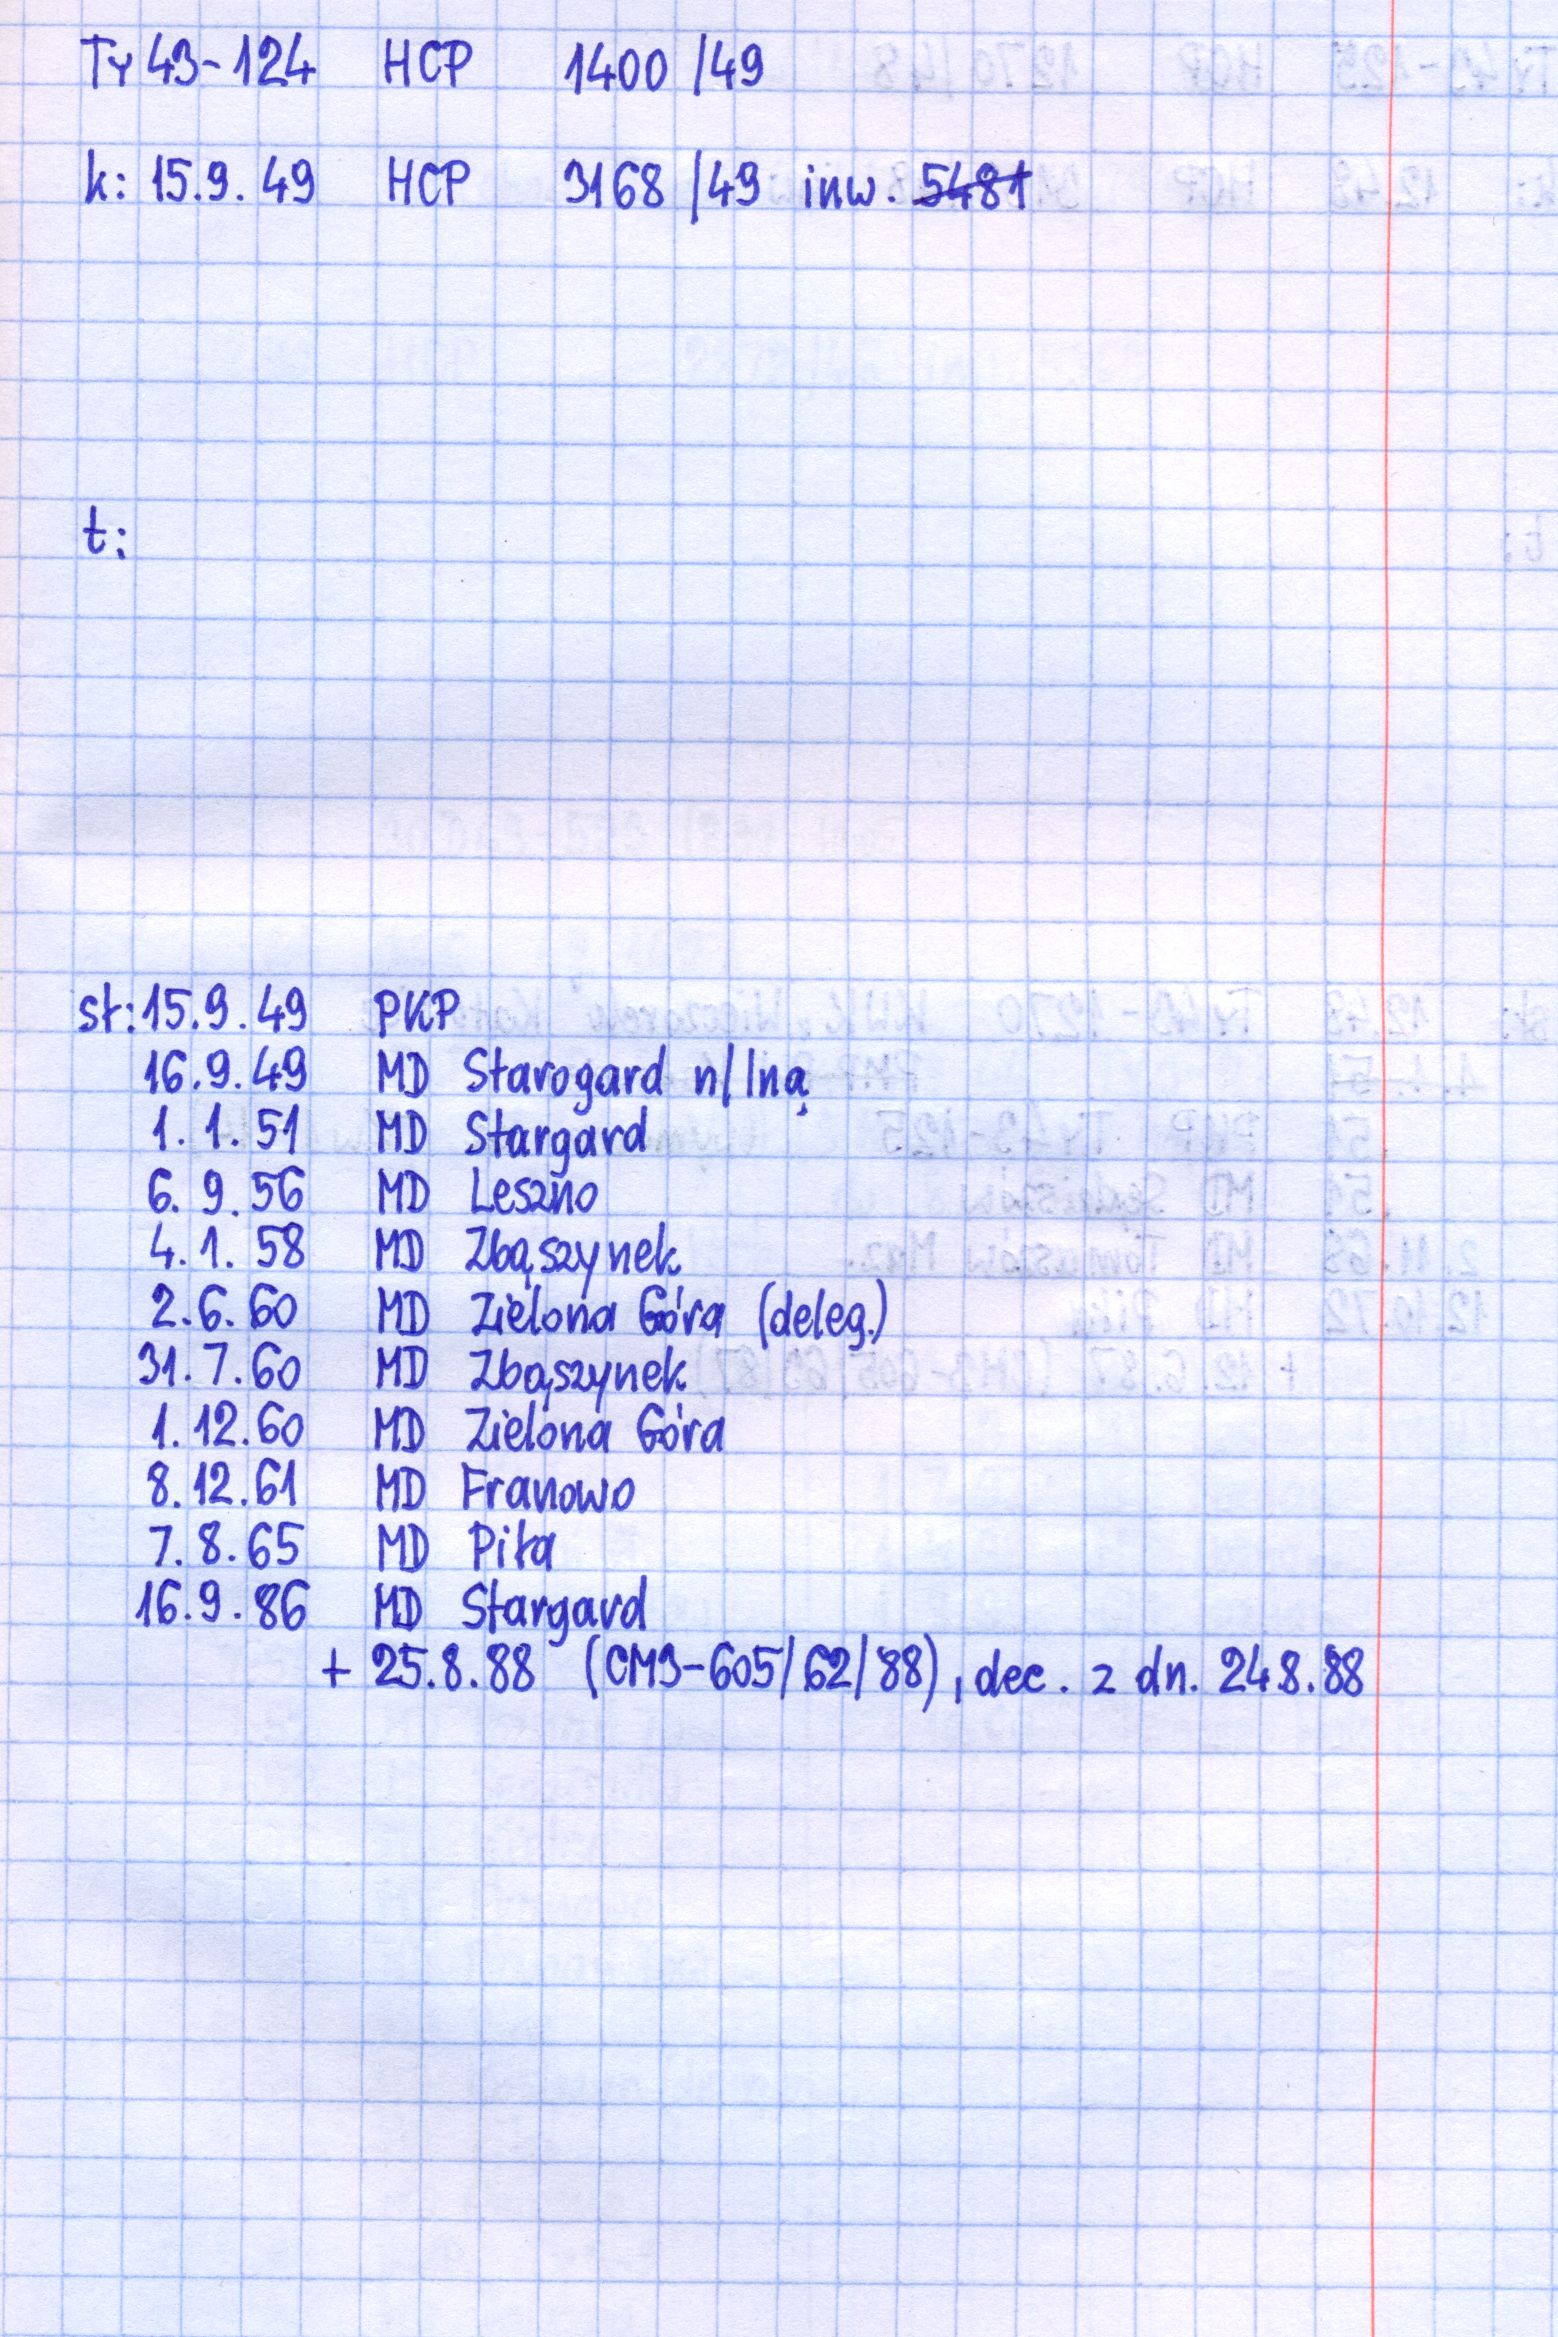 Ty 43-124 HCP 1400/49
k: 15.9.49 HCP 3168/49 inw. 5481
t:
st: 15.9.49 PKP
16.9.49 MD Starogard n/Iną
1.1.51 MD Stargard
6.9.56 MD Leszno
4.1.58 MD Zbąszynek
2.6.60 MD Zielona Góra (deleg.)
31.7.60 MD Zbąszynek
1.12.60 MD Zielona Góra
8.12.61 MD Franowo
7.8.65 MD Piła
16.9.86 MD Stargard
+ 25.8.88 (CM3-605/62/88), dec. z dn. 24.8.88